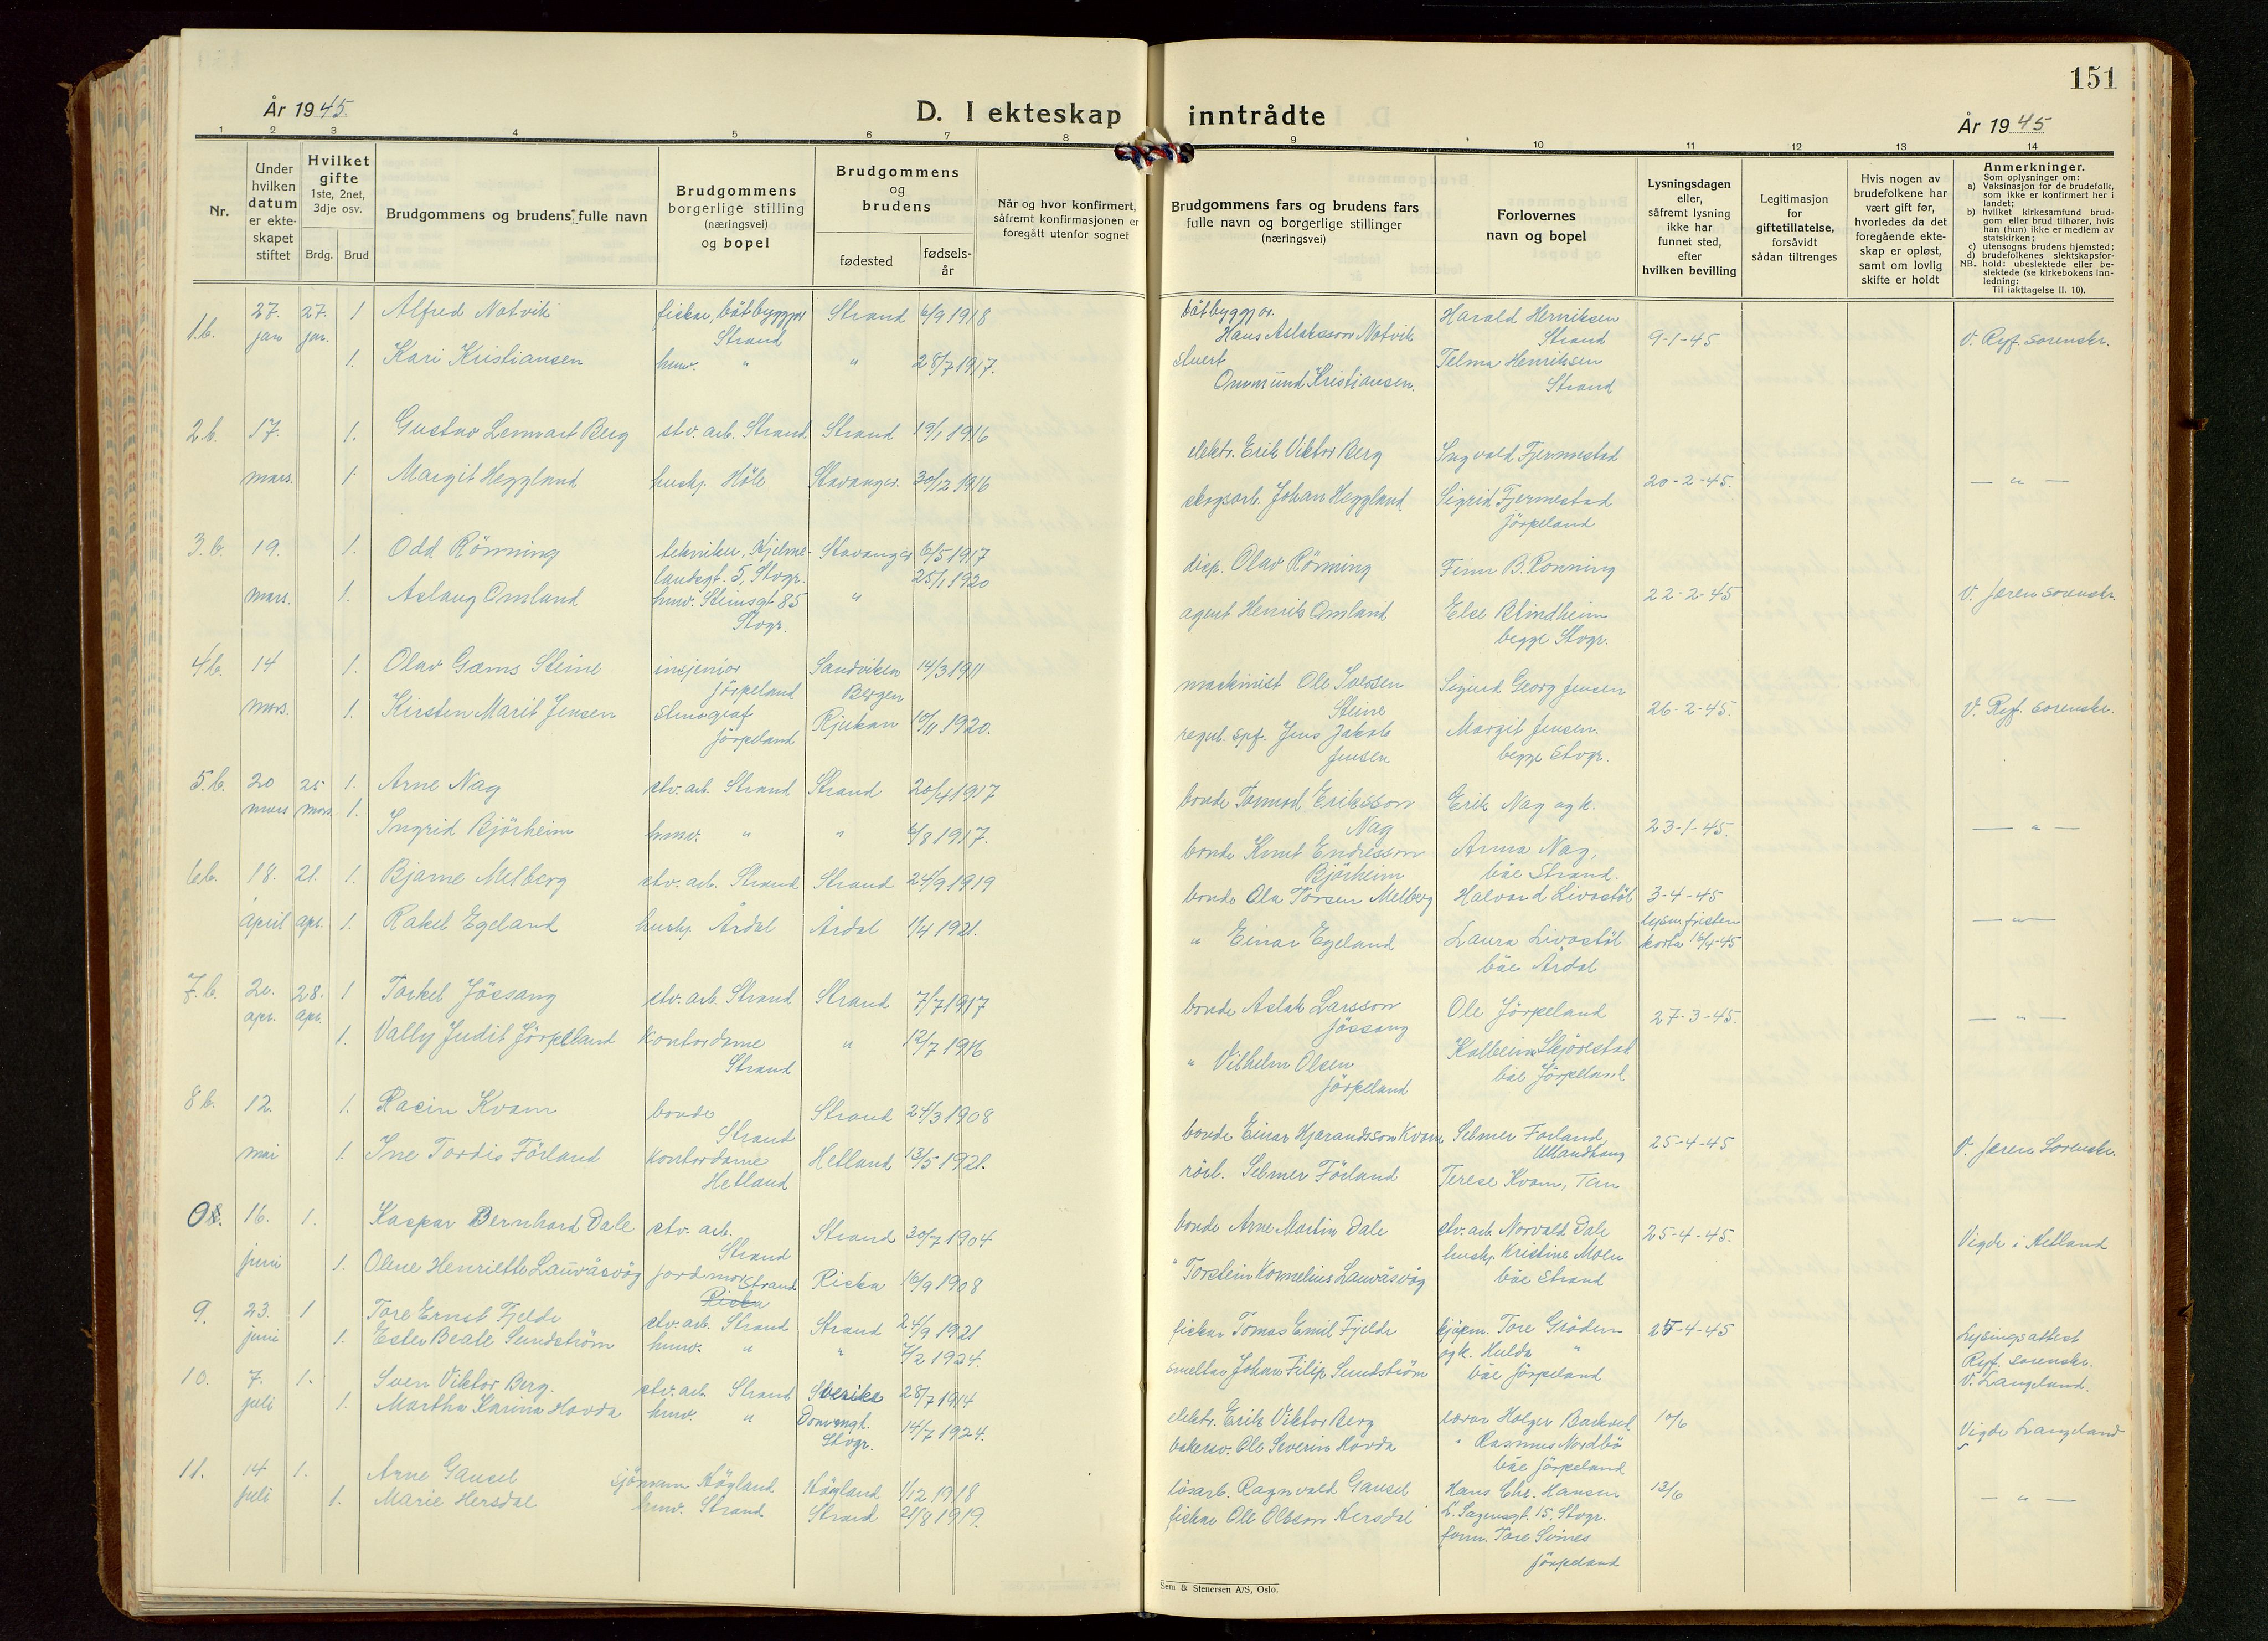 151
År 1945.
D. I ekteskap inntrådte
År 1945
1 2 3 4 5 6 7 8 9 10 11 12 13 14
Nr.
Under hvilken datum er ekteskapet stiftet
Hvilket gifte 1ste, 2net, 3dje osv.
Brdg. Brud
Brudgommens og brudens fulle navn
Brudgommens borgerlige stilling (næringsvei) og bopel
Brudgommens og brudens
fødested
fødselsår
Når og hvor konfirmert, såfremt konfirmasjonen er foregått utenfor sognet
Brudgommens fars og brudens fars fulle navn og borgerlige stillinger (næringsvei)
Forlovernes navn og bopel
Lysningsdagen eller, såfremt lysning ikke har funnet sted, efter hvilken bevilling
Legitimasjon for giftetillatelse, forsåvidt sådan tiltrenges
Hvis nogen av brudefolkene har vært gift før, hvorledes da det foregående ekteskap er opløst, samt om lovlig skifte er holdt
Anmerkninger.
Som oplysninger om:
a) Vaksinasjon for de brudefolk, som ikke er konfirmert her i landet;
b) hvilket kirkesamfund brudgom eller brud tilhører, hvis han (hun) ikke er medlem av statskirken;
c) utensogns brudens hjemsted;
d) brudefolkenes slektskapsforhold: ubeslektede eller beslektede (se kirkebokens innledning:
NB.
Til iakttagelse II. 10).
1.b. 27. jan 27. jan. 1 Alfred Notvik fisker, båtbyggjar Strand Strand 6/9 1918 båtbyggjar. Hans Aslaksson Notvik Harald Henriksen Strand 9-1-45 V. Ryf. sorenskr.
1. Kari Kristiansen husv. " " 28/7 1917. stuert Ommund Kristiansen. Telma Henriksen Strand
2.b. 17. mars. 1. Gustav Lennart Berg stv. arb. Strand Strand 19/1 1916 elektr. Erik Viktor Berg Ingvald Fjermestad 20-2-45. — " —
1 Margit Heggland hushj. Höle Stavanger. 30/12 1916 skogsarb. Johan Heggland Sigrid Fjermestad Jörpeland
3.b. 19. mars. 1. Odd Rönning tekniker, Hjelmelandsgt. 5, Stvgr. Stavanger 6/5 1917 disp. Olav Rönning Finn B. Rönning 22-2-45 V. Jæren sorenskr.
1. Aslaug Omland husv. Steinsgt 85 Stvgr. " 25/1 1920 agent Henrik Omland Else Blindheim begge Stvgr.
4b. 14 mars. 1. Olav Gæms Steine insjeniör Jörpeland Sandviken Bergen 14/3 1911 maskinist Ole Iversen Steine Sigurd Georg Jensen 26-2-45. V. Ryf. sorenskr.
1. Kirsten Marit Jensen stenograf Jörpeland Rjukan 10/11 1920. regnl. spf. Jens Jakob Jensen Margit Jensen. begge Stvgr.
5.b. 20 mars 25 mars. 1. Arne Nag stv. arb. Strand Strand 20/4 1917 bonde Tormod Eriksson Nag Erik Nag og k. 23-1-45. — " —
1. Ingrid Bjørheim husv. " " 6/8 1917. bonde Knut Endresson Bjørheim Anna Nag, båe Strand.
6.b. 18. april 21. apr. 1. Bjarne Melberg stv. arb. Strand Strand 24/9 1919 bonde Ola Torsen Melberg Halvard Livastöl 3-4-45 — " —
1. Rakel Egeland hushj. Årdal Årdal 1/4 1921. " Einar Egeland Laura Livastöl båe Årdal lysn. fristen korta 16/4-45
7.b. 20. apr. 28. apr. 1 Torkel Jössang stv. arb. Strand Strand 7/7 1917 bonde Aslak Larsson Jössang Ole Jörpeland 27-3-45. — " —
1. Vally Judit Jörpeland kontordame Strand " 12/7 1916 " Vilhelm Olsen Jörpeland Kolbein Skjörestad båe Jörpeland
8b. 12. mai 1. Rasin Kvam bonde Strand Strand 24/3 1908 bonde Einar Hjarandsson Kvam Selmer Forland, Ullandhaug 25-4-45 V. Jæren Sorenskr.
1. Ine Tordis Förland kontordame Hetland Hetland 13/5 1921. rörl. Selmer Förland Terese Kvam, Tau
O8. 16. juni 1. Kaspar Bernhard Dale stv. arb. Strand Strand 30/7 1904 bonde Arne Martin Dale stv. arb. Norvald Dale 25-4-45. Vigde i Hetland
1. Oline Henriette Lauvåsvåg jordmor Strand Riska Riska 16/9 1908 " Torstein Kornelius Lauvåsvåg hushj. Kristine Moen båe Strand
9. 23. juni 1 Tore Ernst Fjelde stv. arb. Strand Strand 24/9 1921 fiskar Tomas Emil Fjelde kjöpm. Tore Gröden 25-4-45 Lysingsattest Ryf. sorenskr. V. Langeland.
1. Ester Beate Sundström husv. " " 7/2 1924. smeltar Johan Filip Sundström og k. Hulda " båe Jörpeland
10. 7. juli 1. Sven Viktor Berg. stv. arb. Strand Sverike 28/7 1914 elektr. Erik Viktor Berg lærar Holger Barkved 10/6 Vigde Langeland
1. Martha Karina Hovda husv. " Domvengt. Stvgr. 14/7 1924. bakersv. Ole Severin Hovda " Rasmus Nordbö båe Jörpeland
11. 14 juli 1. Arne Gausel sjömann Högland Högland 1/12 1918 lösarb. Ragnvald Gausel Hans Chr. Hansen 13/6 — " —
1. Marie Hersdal husv. Strand. Strand 21/8 1919. fiskar Ole Olsson Hersdal L. Sagensgt. 15, Stvgr. form. Tore Svines Jörpeland
Sem & Stenersen A/S, Oslo.